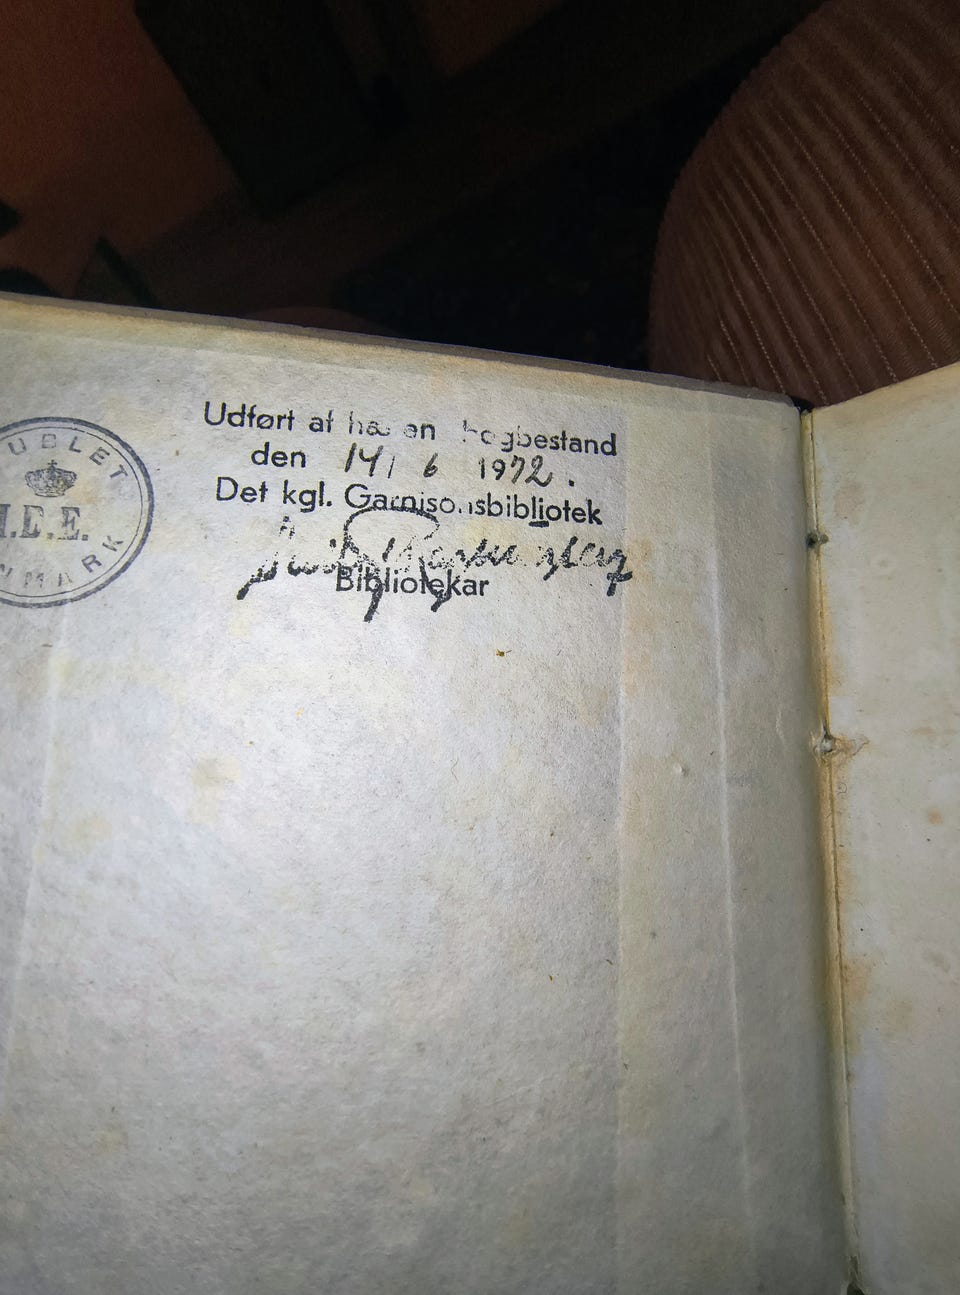 UBLET
.E.E.
NMARK
Udført af hæ en bogbestand
den 14/6 1972.
Det kgl. Garnisonsbibliotek
Bibliotekar